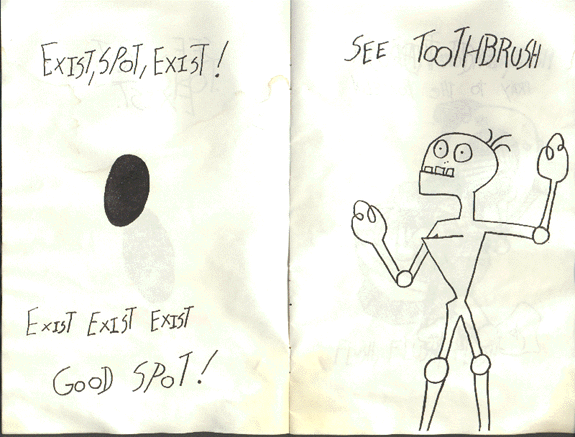 EXIST, SPOT, EXIST!
EXIST EXIST EXIST
GOOD SPOT!
SEE TOOTHBRUSH